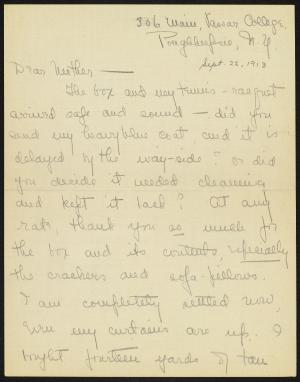 306 Main, Vassar College,
Poughkeepsie, N.Y.
Sept. 22, 1918
Dear Mother —
The box and my tennis-racquet
arrived safe and sound — did you
send my heavy blue coat and it is
delayed by the way-side? or did
you decide it needed cleaning
and kept it back? At any
rate, thank you so much for
the box and its contents, especially
the crackers and sofa-pillows.
I am completely settled now,
my curtains are up. I
bought fourteen yards of tan